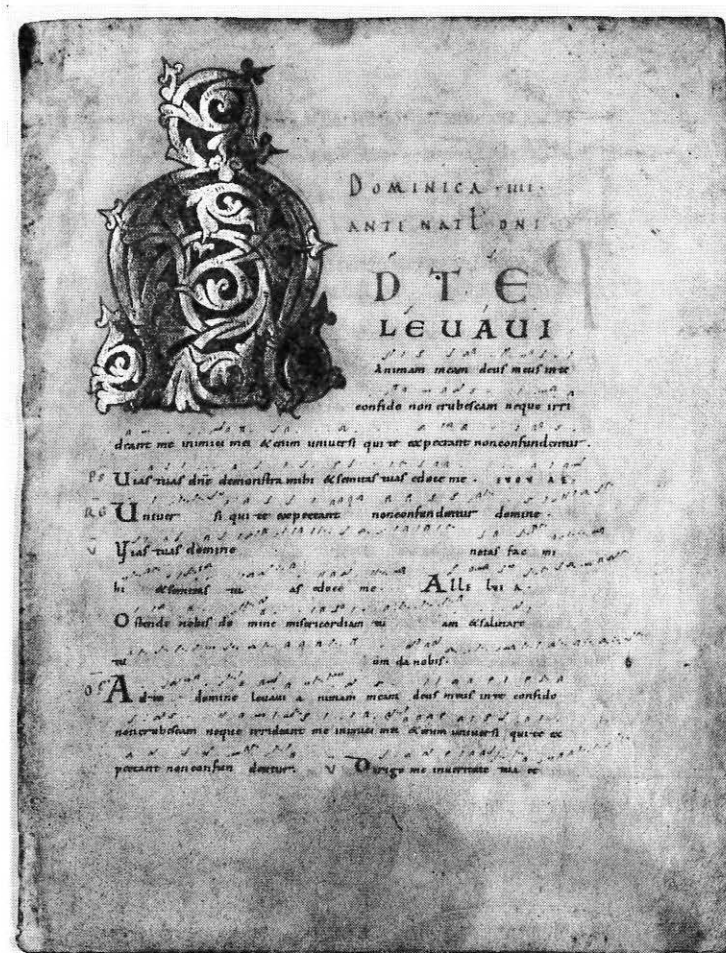 DOMINICA · IIII ·
ANTE NATL DNI
AD TE
LEUAUI
Animam meam deus meus in te
confido non erubescam neque irri
deant me inimici mei & enim uniuersi qui te expectant non confundentur.
PS Uias tuas dne demonstra mihi & semitas tuas edoce me.
RG Uniuer si qui te expectant non confundentur domine.
V Uias tuas domine notas fac mi
hi & semitas tu as edoce me. Alle lui a.
Ostende nobis do mine misericordiam tu am & salutare
tu um da nobis.
OF Ad te domine leuaui a nimam meam deus meus in te confido
non erubescam neque irrideant me inimici mei & enim uniuersi qui te ex
pectant non confun dentur. V Dirige me in ueritate tua et